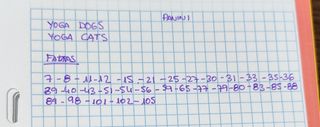 PANINI
YOGA DOGS
YOGA CATS
FALTAS
7 - 8 - 11 - 12 - 15 - 21 - 25 - 27 - 30 - 31 - 33 - 35 - 36
39 - 40 - 43 - 51 - 54 - 56 - 59 - 65 - 77 - 79 - 80 - 83 - 85 - 88
89 - 98 - 101 - 102 - 105